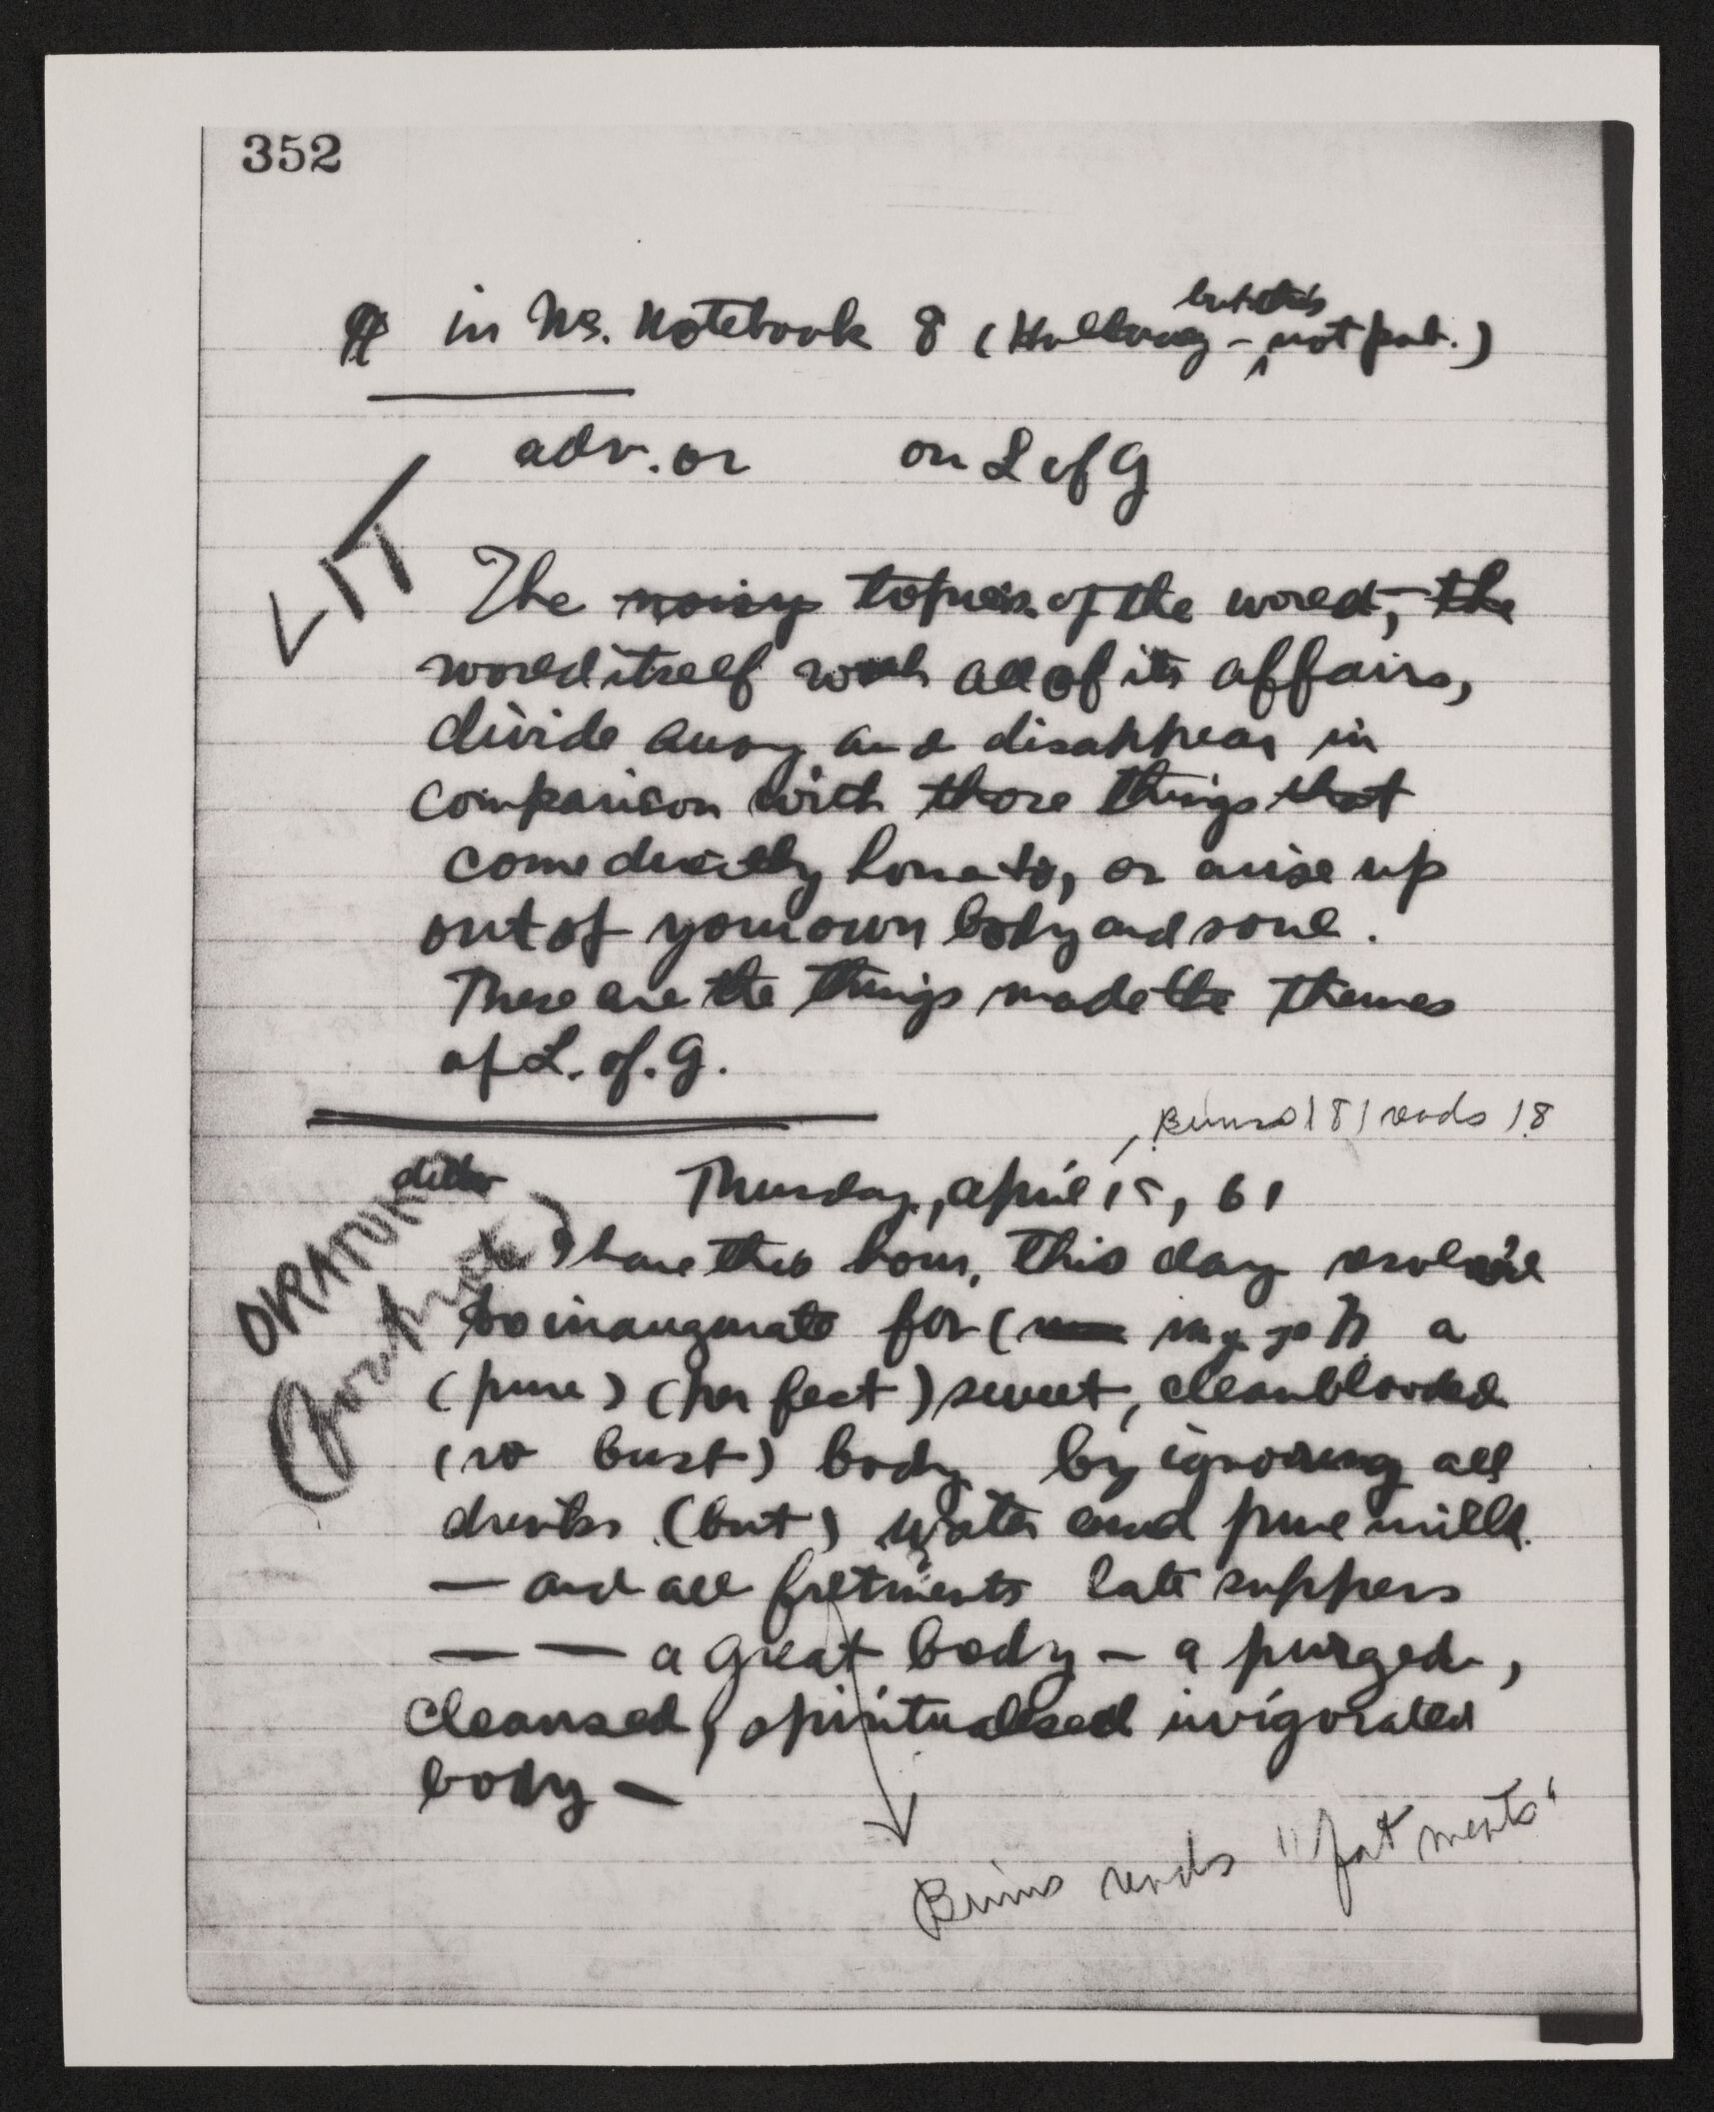 352
in Ms. Notebook 8 (Holloway - but this not pub.)
adv. or on L of G
LIT
The noisy topics of the world, the
world itself with all of its affairs,
divide away and disappear in
comparison with those things that
come directly home to, or arise up
out of your own body and soul.
These are the things made the themes
of L. of. G.
Binns 181 reads 18
ditto
Thursday, April 15, 61
I have this hour, this day resolved
to inaugurate for ( my self) a
(pure) (perfect) sweet, cleanblooded
(ro bust) body by ignoring all
drinks (but) water and pure milk
— and all fretments late suppers
— — a great body — a purged,
cleansed, spiritualised invigorated
body —
Binns reads "fat meats"